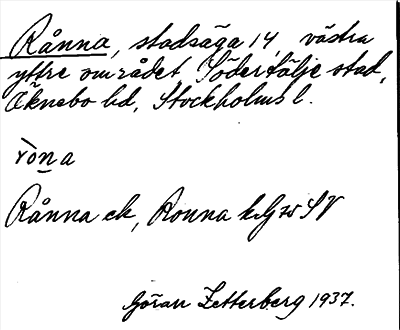 Rånna, stadsäga 14, västra
yttre området, Södertälje stad,
Öknebo hd, Stockholms l.
ròn̲a
Rånna ek, Ronna k G 75 SV
Göran Zetterberg 1937.